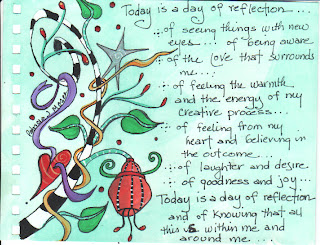 Today is a day of reflection...
...of seeing things with new
eyes... of being aware
of the love that surrounds
me...
...of feeling the warmth
and the energy of my
creative process...
...of feeling from my
heart and believing in
the outcome...
...of laughter and desire
...of goodness and joy...
Today is a day of reflection
and of knowing that all
this is within me and
around me....